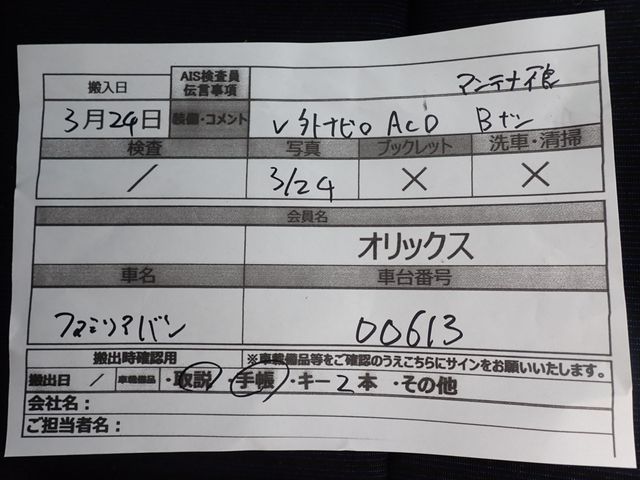 搬入日 AIS検査員 伝言事項 アンテナ
3月24日 装備・コメント ✓外ナビ ACD Bモン
検査 写真 ブックレット 洗車・清掃
/ 3/24 × ×
会員名
オリックス
車名 車台番号
ファミリアバン 00613
搬出時確認用 ※車載備品等をご確認のうえこちらにサインをお願いいたします。
搬出日 / 車載備品 ・取説 ・手帳 ・キー 2 本 ・その他
会社名：
ご担当者名：